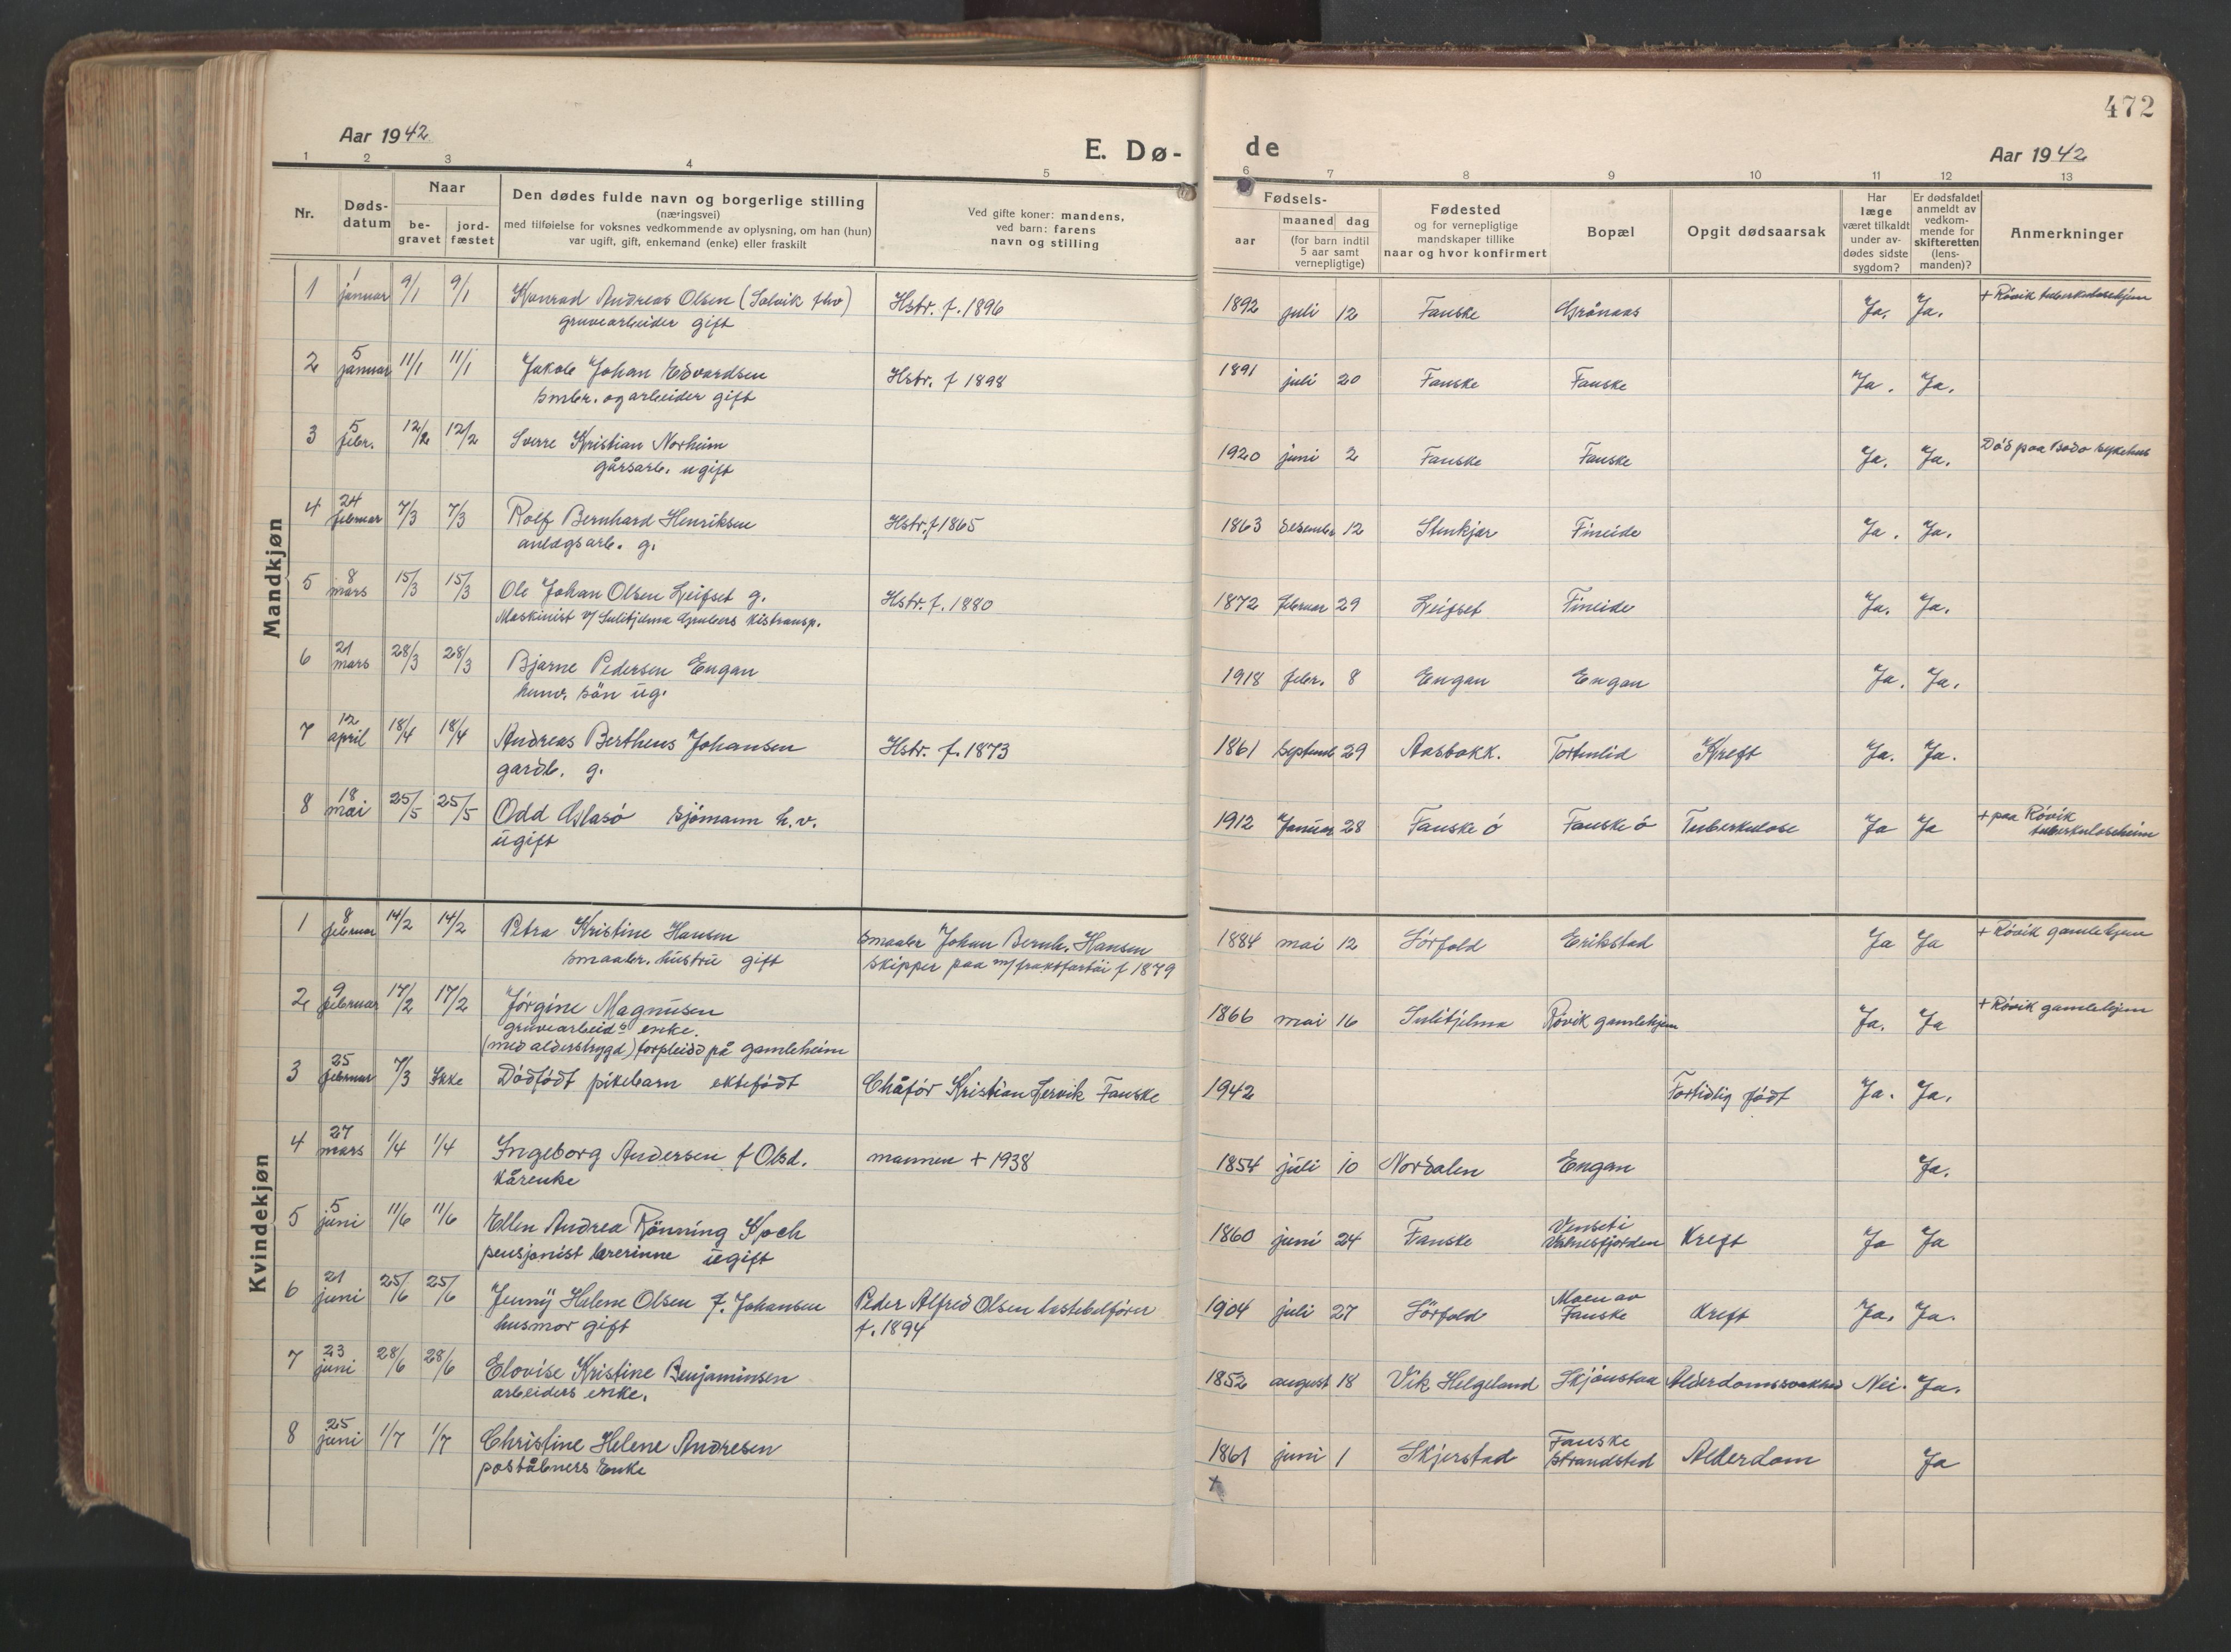 472
Aar 1942
E. Dø-
de
Aar 1942
1 2 3 4 5 6 7 8 9 10 11 12 13
Nr.
Døds-
datum
Naar
be-
gravet
jord-
fæstet
Den dødes fulde navn og borgerlige stilling
(næringsvei)
med tilføielse for voksnes vedkommende av oplysning, om han (hun)
var ugift, gift, enkemand (enke) eller fraskilt
Ved gifte koner: mandens,
ved barn: farens
navn og stilling
Fødsels-
aar
maaned dag
(for barn indtil
5 aar samt
vernepligtige)
Fødested
og for vernepligtige
mandskaper tillike
naar og hvor konfirmert
Bopæl
Opgit dødsaarsak
Har
læge
været tilkaldt
under av-
dødes sidste
sygdom?
Er dødsfaldet
anmeldt av
vedkom-
mende for
skifteretten
(lens-
manden)?
Anmerkninger
Mandkjøn
1 1 januar 9/1 9/1 Konrad Andreas Olsen (Solvik fhv) Hstr. f. 1896 1892 juli 12 Fauske Grönaas Ja. Ja. + Rövik tuberkulosehjem
gruvearbeider gift
2 5 januar 11/1 11/1 Jakob Johan Edvardsen Hstr. f 1898 1891 juli 20 Fauske Fauske Ja. Ja.
smbr. og arbeider gift
3 5 febr. 12/2 12/2 Sverre Kristian Norheim 1920 juni 2 Fauske Fauske Ja. Ja. Död paa Bodö sykehus
gårsarb. ugift
4 24 februar 7/3 7/3 Rolf Bernhard Henriksen Hstr. f 1865 1863 desember 12 Stenkjær Fineide Ja. Ja.
anlægsarb. g.
5 8 mars 15/3 15/3 Ole Johan Olsen Leifset g. Hstr. f. 1880 1872 februar 29 Leifset Fineide Ja. Ja.
Maskinist v/ Sulitjelma Grubers Kistransp.
6 21 mars 28/3 28/3 Bjarne Pedersen Engan 1918 febr. 8 Engan Engan Ja. Ja.
sön ug.
7 12 april 18/4 18/4 Andreas Bertheus Johansen Hstr. f. 1873 1861 septemb 29 Aasbakk. Tortenlid Kreft Ja. Ja.
gardb. g.
8 18 mai 25/5 25/5 Odd sjömann h.v. 1912 Januar 28 Fauske ö Fauske ö Tuberkulose Ja Ja + paa Rövik
ugift tuberkuloseheim
Kvindekjøn
1 8 februar 14/2 14/2 Petra Kristine Hansen smaabr Johan Bernh. Hansen 1884 mai 12 Sörfold Erikstad Ja Ja + Rövik gamlehjem
smaabr. hustru gift skipper paa m/fraktfartöi f 1879
2 9 februar 17/2 17/2 Jörgine Magnusen 1866 mai 16 Sulitjelma Rövik gamlehjem Ja. Ja + Rövik gamlehjem
gruvearbeids enke.
(med alderstrygd) forpleid på gamleheim
3 25 februar 7/3 Ikke Dödfödt pikebarn ektefödt Chåför Kristian Lervik Fauske 1942 Fortidlig födt Ja. Ja.
4 27 mars 1/4 1/4 Ingeborg Andersen f Olsd. mannen + 1938 1854 juli 10 Nordalen Engan Ja.
kårenke
5 5 juni 11/6 11/6 Ellen Andrea Rönning Koch 1860 juni 24 Fauske Venset i Valnesfjorden Kreft Ja Ja
pensjonist lærerinne ugift
6 21 juni 25/6 25/6 Jenny Helene Olsen f. Johansen Peder Alfred Olsen lastebilförer 1904 juli 27 Sörfold Moen av Fauske Kreft Ja. Ja.
husmor gift f. 1894
7 23 juni 28/6 28/6 Elovise Kristine Benjaminsen 1852 august 18 Vik Helgeland Skjönstaa Alderdomssvakhed Nei. Ja.
arbeiders enke.
8 25 juni 1/7 1/7 Christine Helene Andresen 1861 juni 1 Skjerstad Fauske strandsted Alderdom Ja
poståbners Enke
+